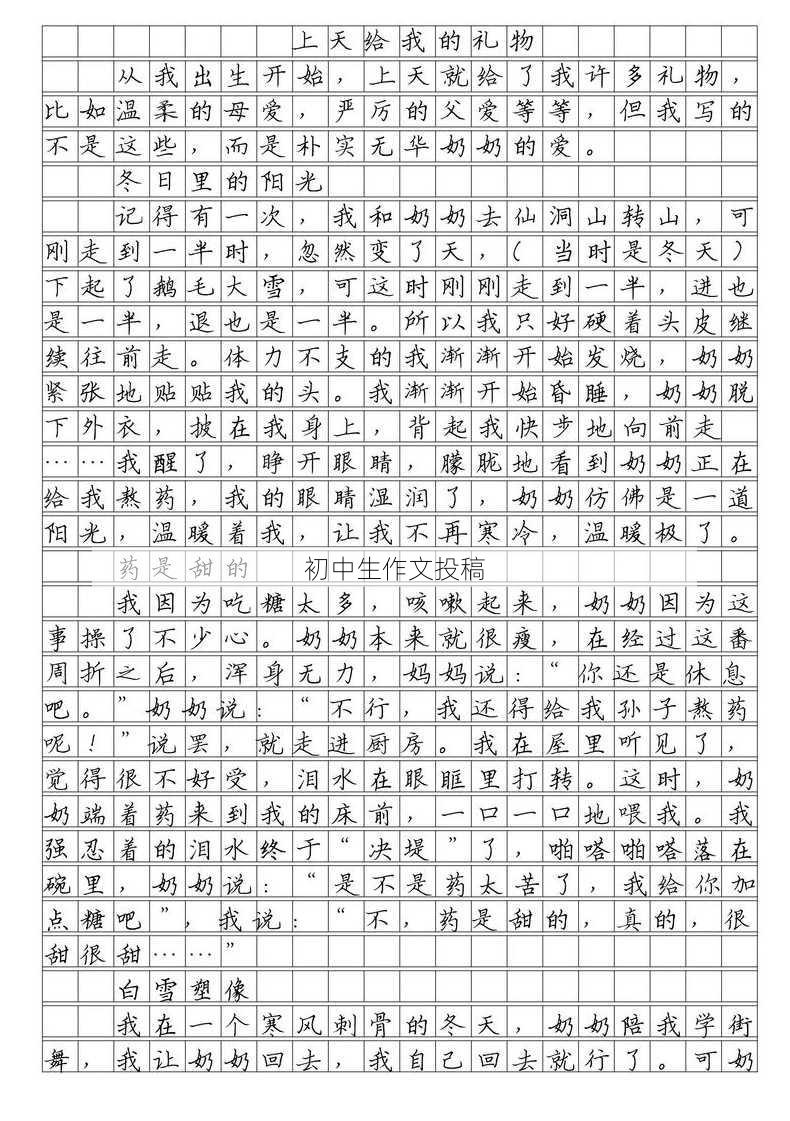 上天给我的礼物
从我出生开始，上天就给了我许多礼物，
比如温柔的母爱，严厉的父爱等等，但我写的
不是这些，而是朴实无华奶奶的爱。
冬日里的阳光
记得有一次，我和奶奶去仙洞山转山，可
刚走到一半时，忽然变了天，（当时是冬天）
下起了鹅毛大雪，可这时刚刚走到一半，进也
是一半，退也是一半。所以我只好硬着头皮继
续往前走。体力不支的我渐渐开始发烧，奶奶
紧张地贴贴我的头。我渐渐开始昏睡，奶奶脱
下外衣，披在我身上，背起我快步地向前走
……我醒了，睁开眼睛，朦胧地看到奶奶正在
给我熬药，我的眼睛湿润了，奶奶仿佛是一道
阳光，温暖着我，让我不再寒冷，温暖极了。
药是甜的 初中生作文投稿
我因为吃糖太多，咳嗽起来，奶奶因为这
事操了不少心。奶奶本来就很瘦，在经过这番
周折之后，浑身无力，妈妈说：“你还是休息
吧。”奶奶说：“不行，我还得给我孙子熬药
呢！”说罢，就走进厨房。我在屋里听见了，
觉得很不好受，泪水在眼眶里打转。这时，奶
奶端着药来到我的床前，一口一口地喂我。我
强忍着的泪水终于“决堤”了，啪嗒啪嗒落在
碗里，奶奶说：“是不是药太苦了，我给你加
点糖吧”，我说：“不，药是甜的，真的，很
甜很甜……”
白雪塑像
我在一个寒风刺骨的冬天，奶奶陪我学街
舞，我让奶奶回去，我自己回去就行了。可奶